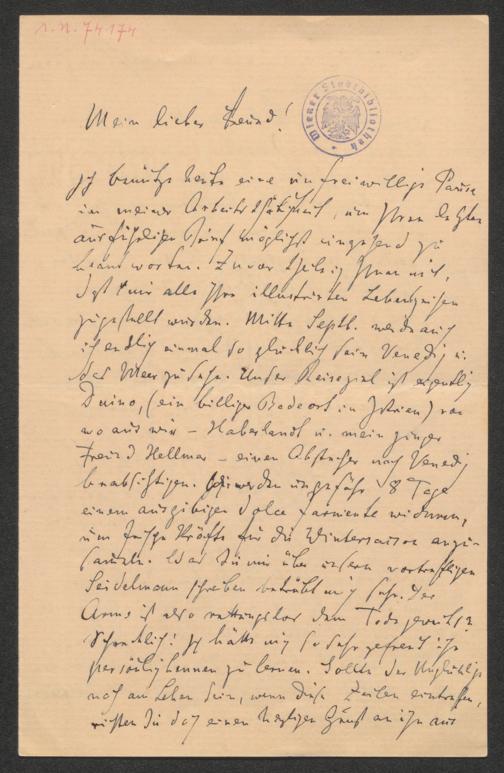 I. N. 74174
Wiener Stadtbibliothek
Mein lieber Freund!
Ich benütze heute eine unfreiwillige Pause
in meiner Arbeitsthätigkeit, um Ihren letzten
ausführlichen Brief möglichst eingehend zu
beantworten. Zuvor theile ich Ihnen mit,
daß mir alle Ihre illustrirten Lebenszeichen
zugestellt wurden. Mitte Septb. werde auch
ich endlich einmal so glücklich sein Venedig u.
das Meer zu sehn. Unser Reiseziel ist eigentlich
Duino, (ein billiger Badeort in Istrien) von
wo aus wir – Haberlandt u. mein junger
Freund Hellmer – einen Abstecher nach Venedig
beabsichtigen. Wir werden ungefähr 8 Tage
einem ausgibigen dolce farniente widmen,
um frische Kräfte für die Wintersaison anzu-
sammeln. Was Sie mir über unsern vortrefflichen
Seidelmann schreiben betrübt mich sehr. Der
Arme ist also rettungslos dem Tode geweiht?
Schrecklich! Ich hätte mich so sehr gefreut ihn
persönlich kennen zu lernen. Sollte der Unglückliche
noch am Leben sein, wenn diese Zeilen eintreffen,
richten Sie doch einen herzlichen Gruß an ihn aus